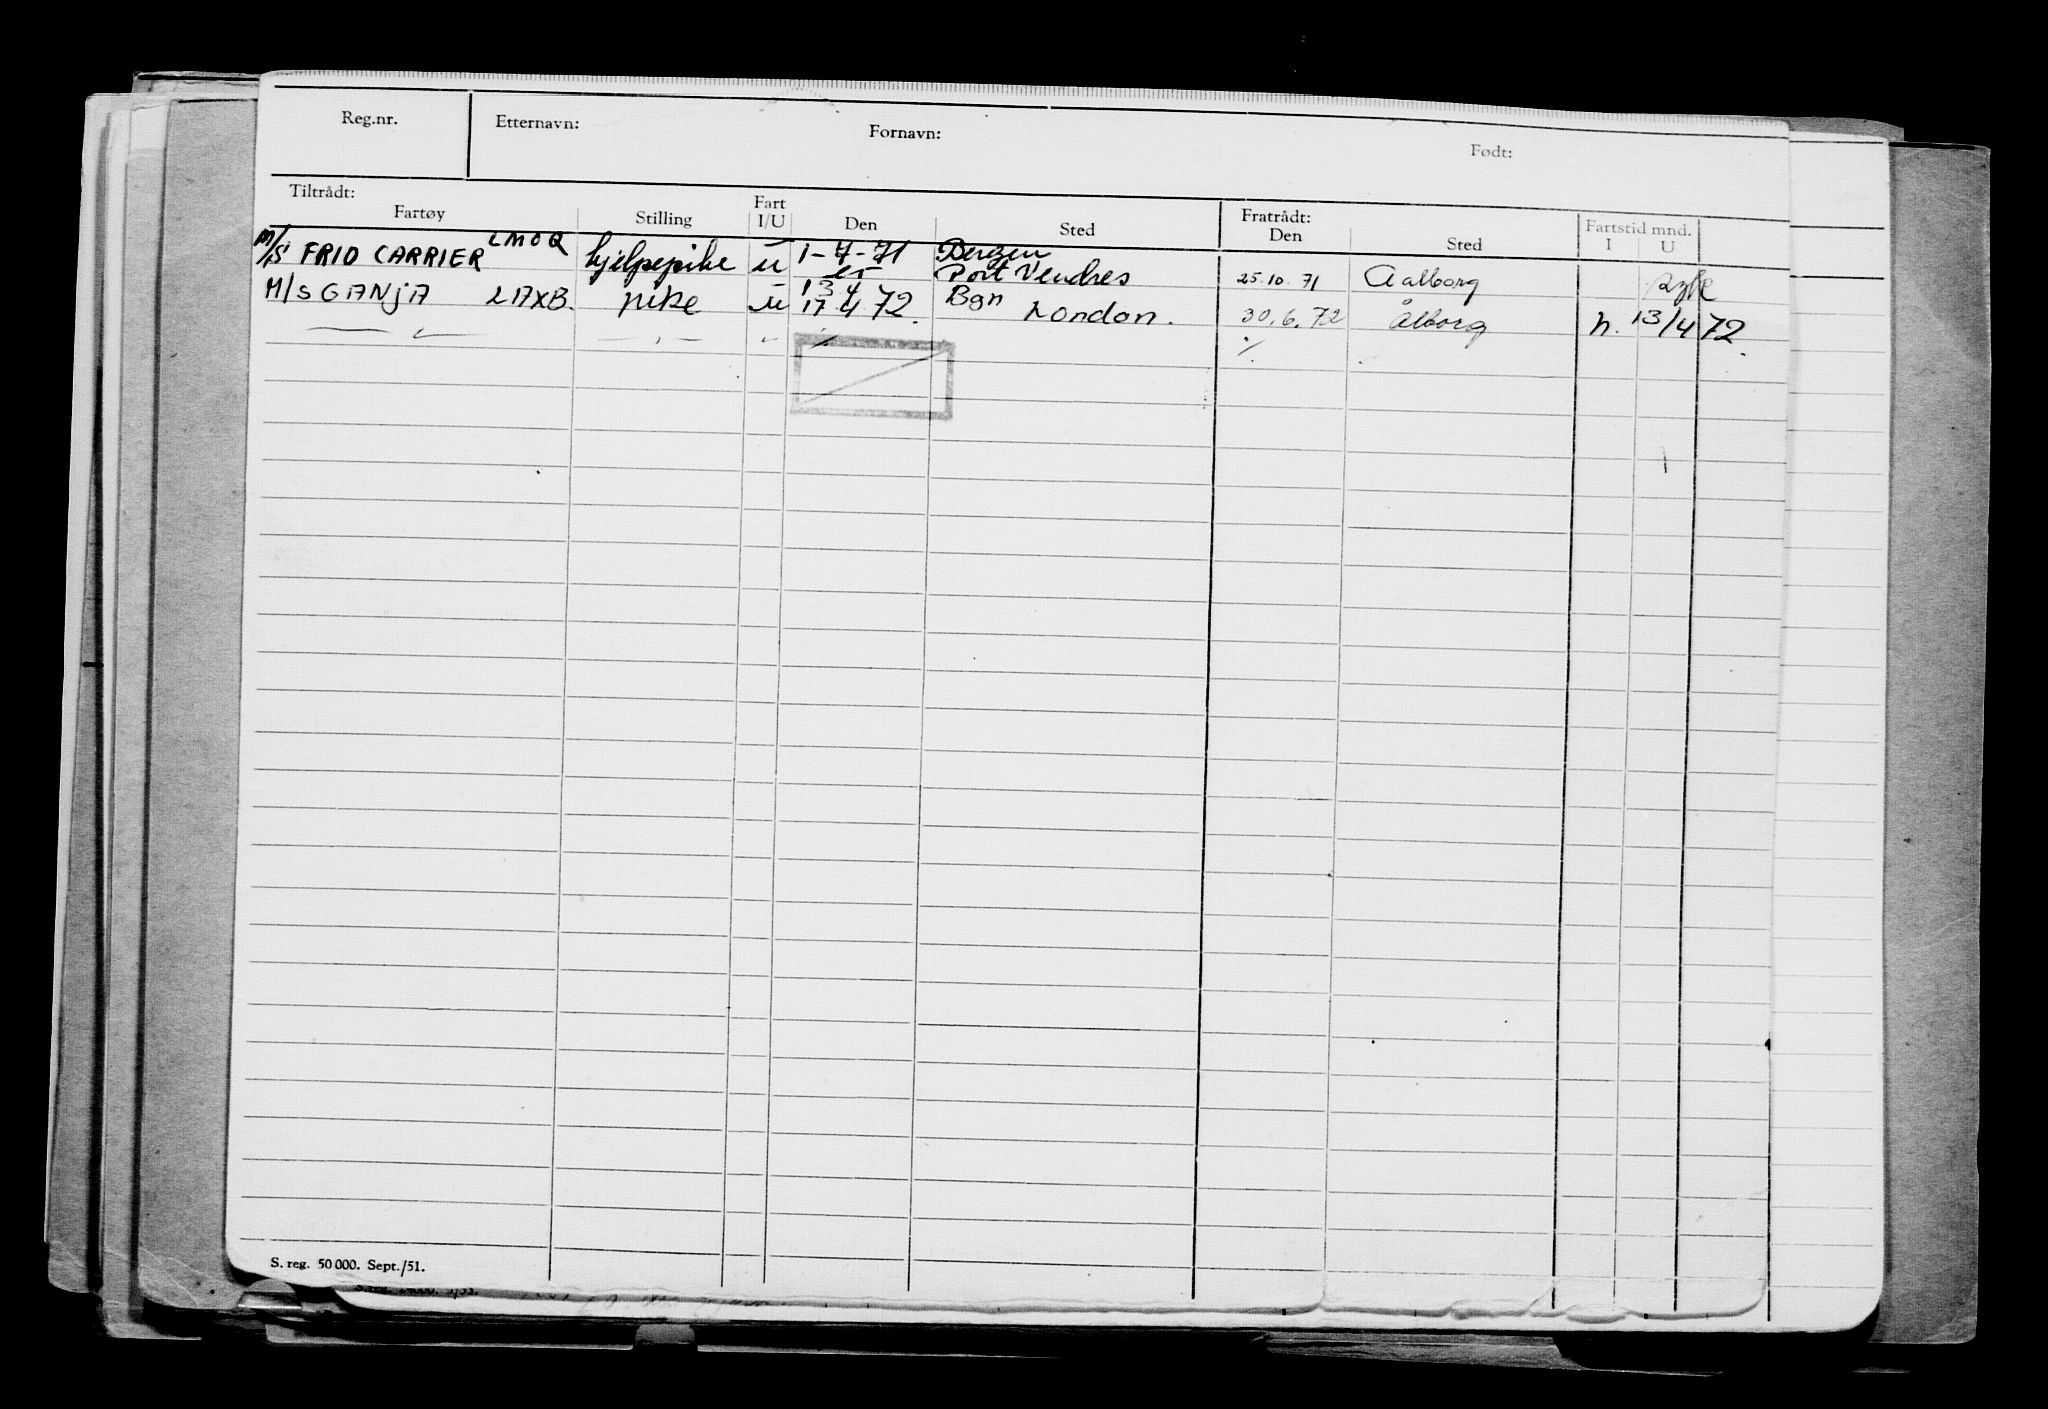 Reg.nr. Etternavn: Fornavn: Født:
Tiltrådt: Fratrådt:
Fartøy Stilling Fart I/U Den Sted Den Sted Fartstid mnd. I U
M/S FRIO CARRIER LMOQ hjelpepike u 1-7-71 Bergen
Port Vendres 25.10.71 Aalborg
M/S GANJA LAXB. pike u 13 4 Bgn
17 4 72. London. 30.6.72 Ålborg h. 13/4 72.
S. reg. 50 000. Sept./51.